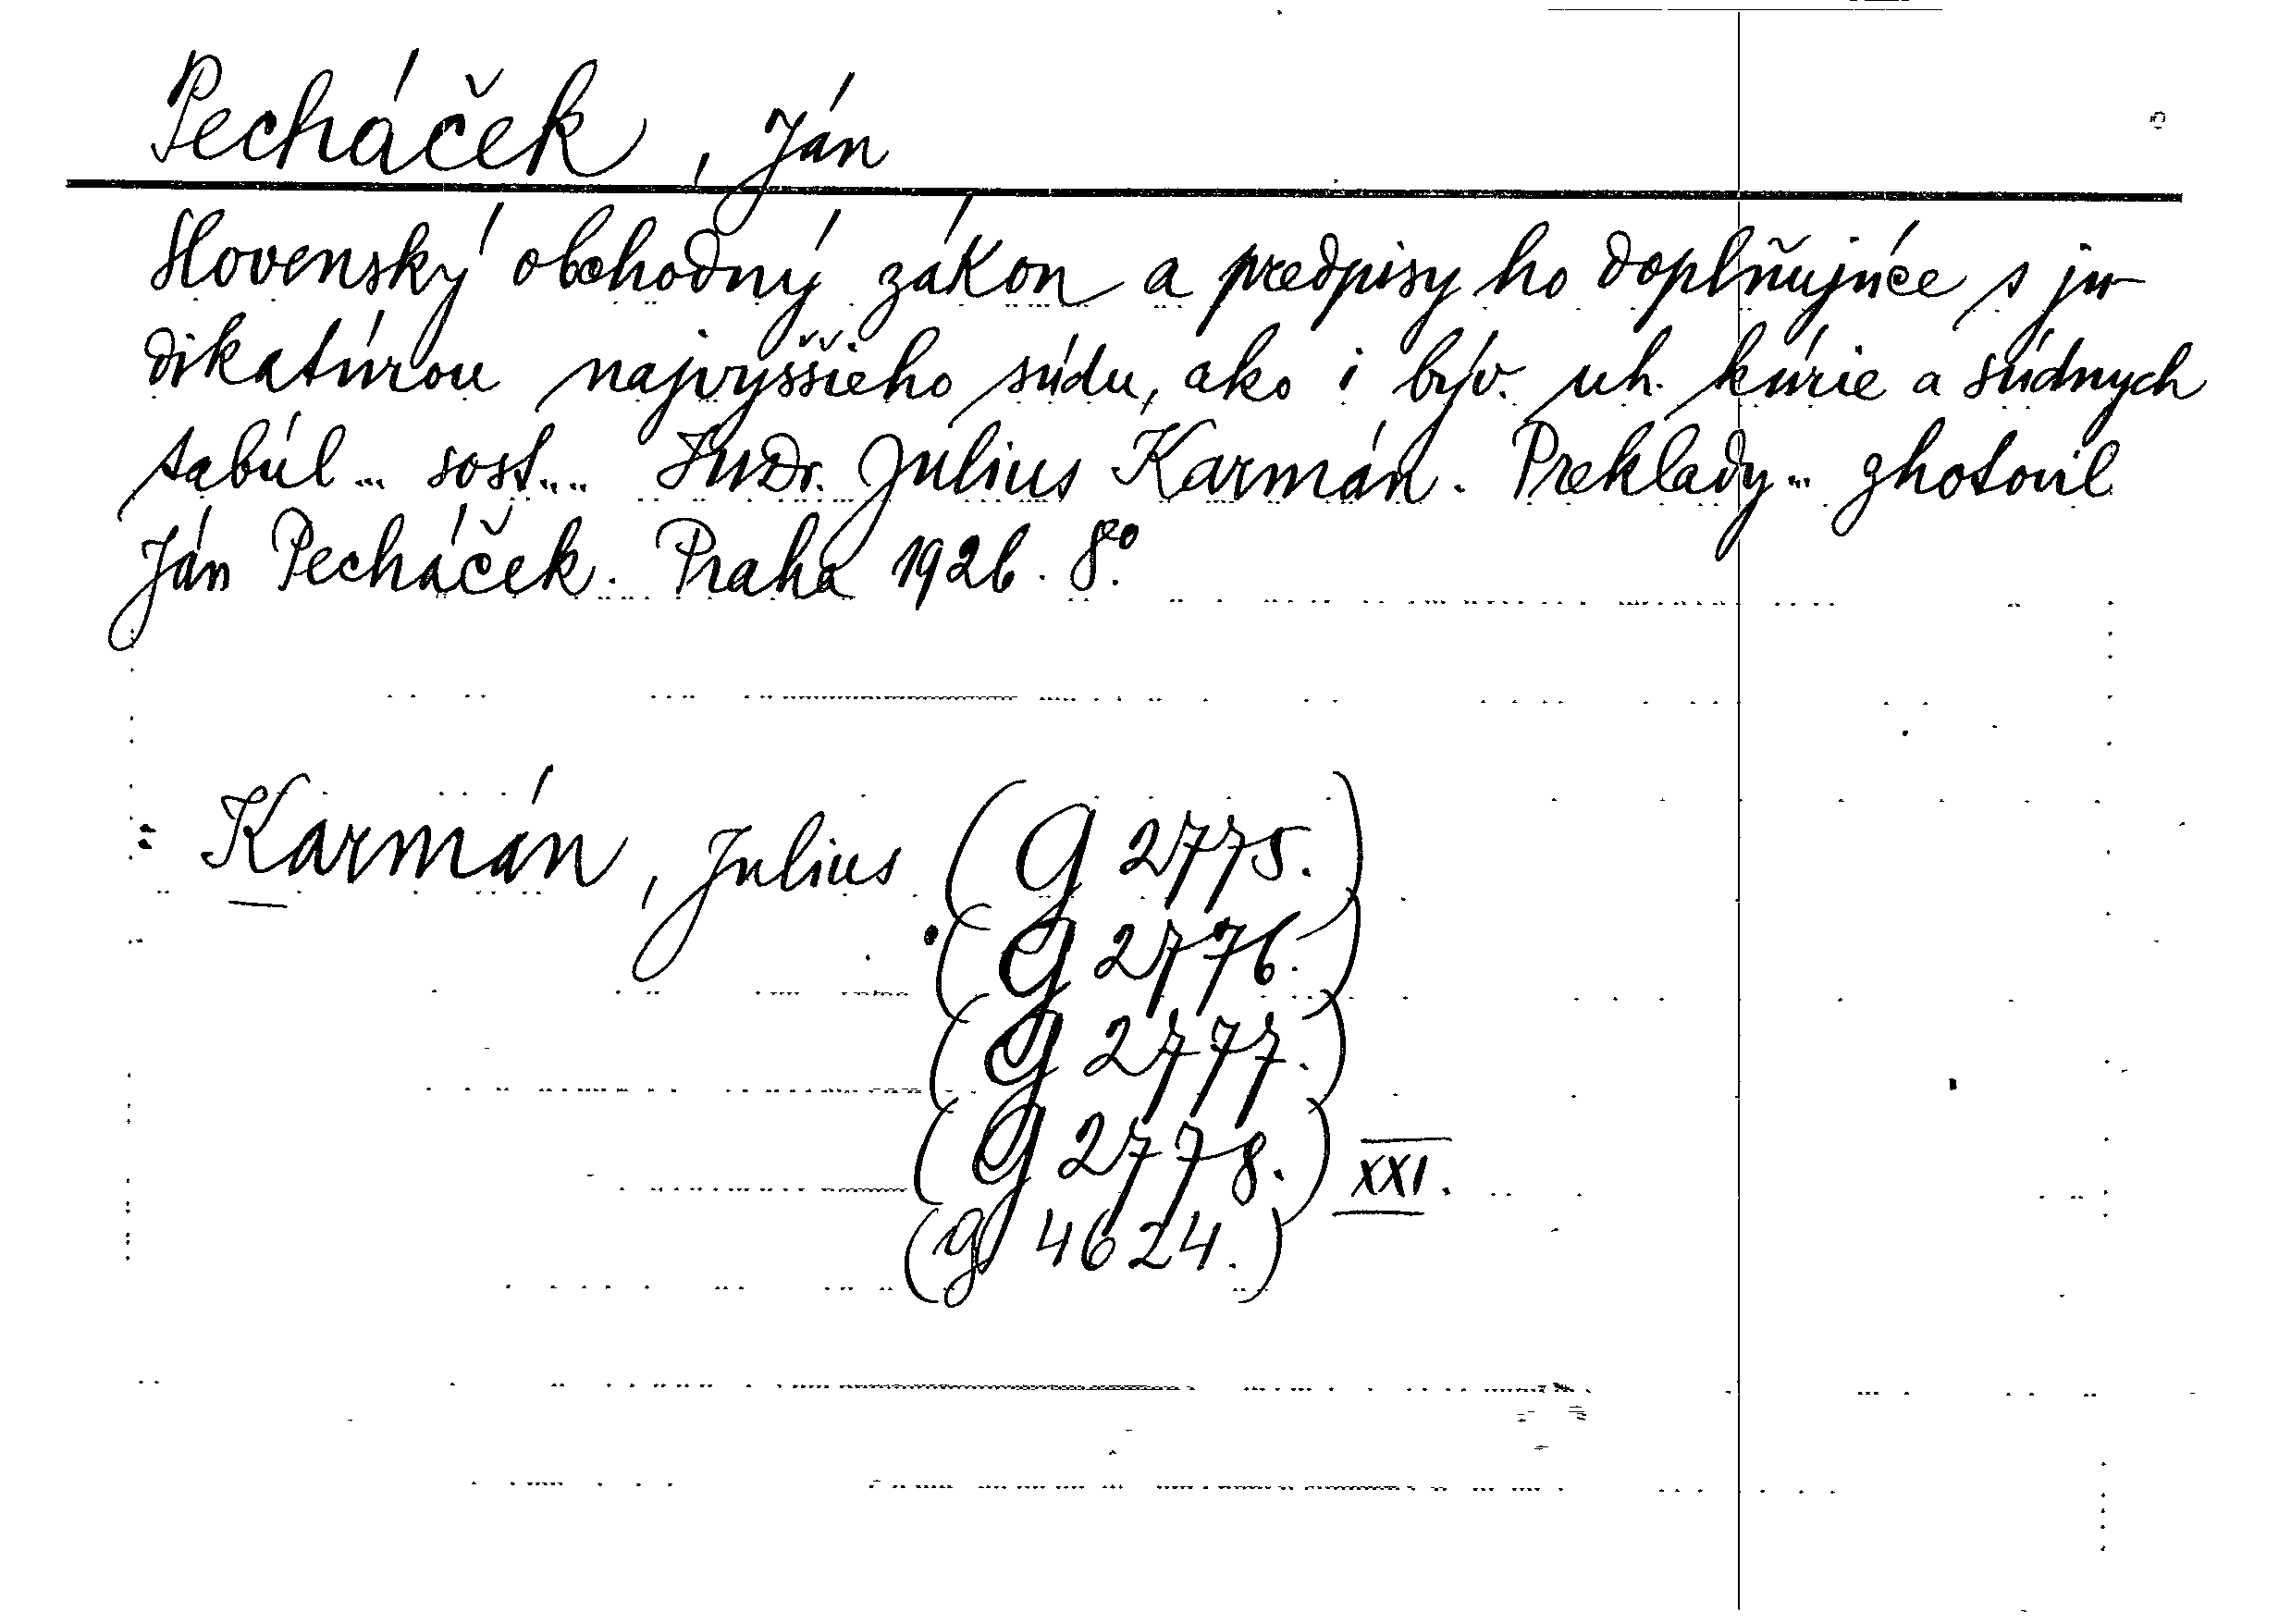 Pecháček, Ján
Slovenský obchodný zákon a predpisy ho doplňujúce s ju-
dikatúrou najvyššieho súdu, ako i býv. uh. kúrie a súdnych
tabúl... sost... JUDr. Július Karmán. Preklady... zhotovil
Ján Pecháček. Praha 1926. 8°.
= Karmán, Julius (G 2775.)
(G 2776.)
(G 2777.)
(G 2778.) XXI.
(g 4624.)